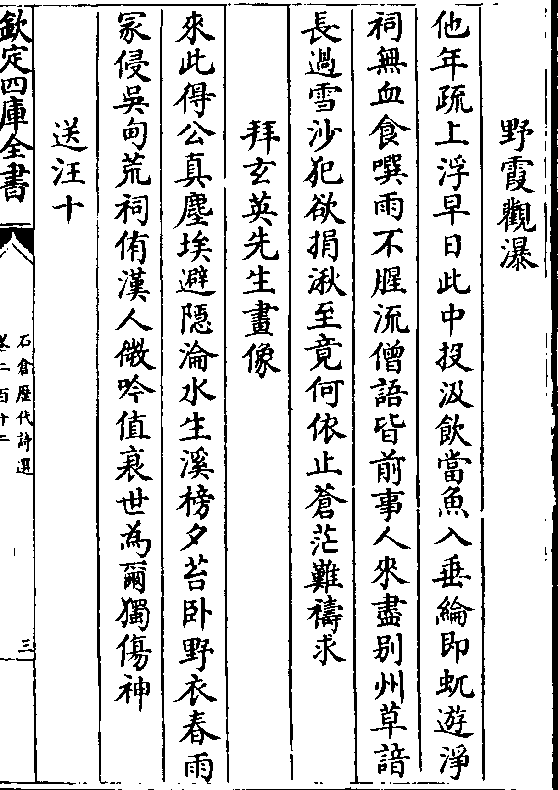 野霞觀瀑
他年疏上浮早日此中投汲飲當魚入垂綸即虬遊淨
祠無血食噀雨不腥流僧語皆前事人來盡别州草諳
長過雪沙犯欲捐湫至竟何依止蒼茫難禱求
拜玄英先生畫像
來此得公真塵埃避隱淪水生溪榜夕苔卧野衣春雨
冢侵吳甸荒祠侑漢人微吟值衰世為爾獨傷神
送汪十
欽定四庫全書
石倉歷代詩選
卷二百十二
三